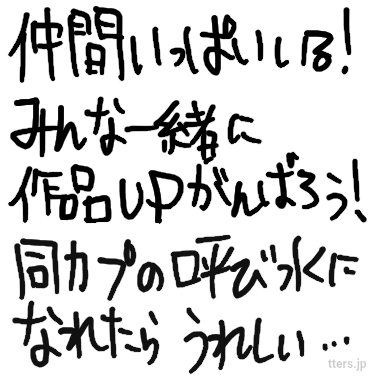 仲間いっぱいいる!
みんな一緒に
作品UPがんばろう!
同カプの呼び水に
なれたら うれしい…
tters.jp